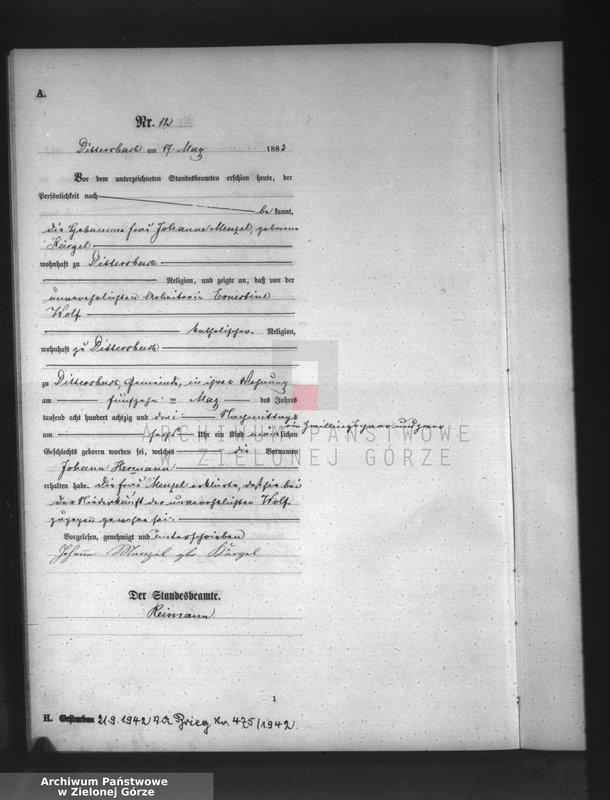 A.
Nr. 12
Dittersbach am 17. May 1883
Vor dem unterzeichneten Standesbeamten erschien heute, der
Persönlichkeit nach
bekannt,
die Hebamme frau Johanne Menzel, geborene
Kürgel
wohnhaft zu Dittersbach
Religion, und zeigte an, daß von der
unverehelichten Arbeiterin Ernestine
Wolf
katholischer Religion,
wohnhaft zu Dittersbach
zu Dittersbach, Gemeinde, in ihrer Wohnung
am fünfzehn ten May des Jahres
tausend acht hundert achtzig und drei Nachmittags
um sechs Uhr ein Kind männlichen
ein Zwillingspaar und zwar
Geschlechts geboren worden sei, welches die Vornamen
Johann Hermann
erhalten habe. Die frau Menzel erklärte, daß sie bei
der Niederkunft der unverehelichten Wolf
zugegen gewesen sei.
Vorgelesen, genehmigt und unterschrieben
Johanne Menzel gbr Kürgel
Der Standesbeamte.
Reimann
1
H. Gestorben 21.9.1942 St.A Brieg Nr. 475/1942.
ARCHIWUM PAŃSTWOWE
W ZIELONEJ GÓRZE
Archiwum Państwowe
w Zielonej Górze